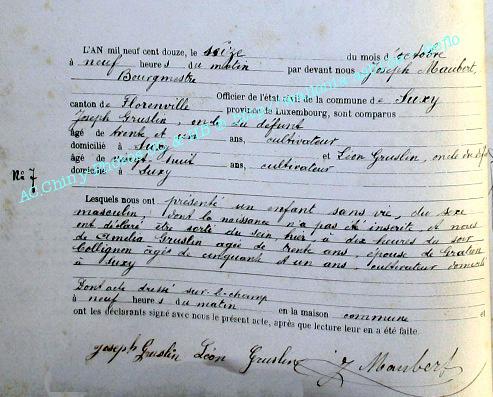 L'AN mil neuf cent douze, le seize du mois d'octobre
à neuf heures du matin par devant nous Joseph Maubert,
Bourgmestre Officier de l'état civil de la commune de Suxy
canton de Florenville province de Luxembourg, sont comparus
Joseph Gruslin, oncle du défunt
âgé de trente et un ans, cultivateur
domicilié à Suxy et Léon Gruslin, oncle du défunt
âgé de vingt huit ans, cultivateur
domicilié à Suxy
No 7
Lesquels nous ont présenté un enfant sans vie, du sexe
masculin, dont la naissance n'a pas été inscrite et nous
ont déclaré être sorti du sein, hier à dix heures du soir
de Amelia Gruslin agée de trente ans, épouse de Gratien
Collignon agés de cinquante et un ans, cultivateur domicilié
à Suxy
Dont acte dressé sur-le-champ
à neuf heures du matin en la maison commune et
ont les déclarants signé avec nous le présent acte, après que lecture leur en a été faite.
Joseph Gruslin Léon Gruslin J Maubert